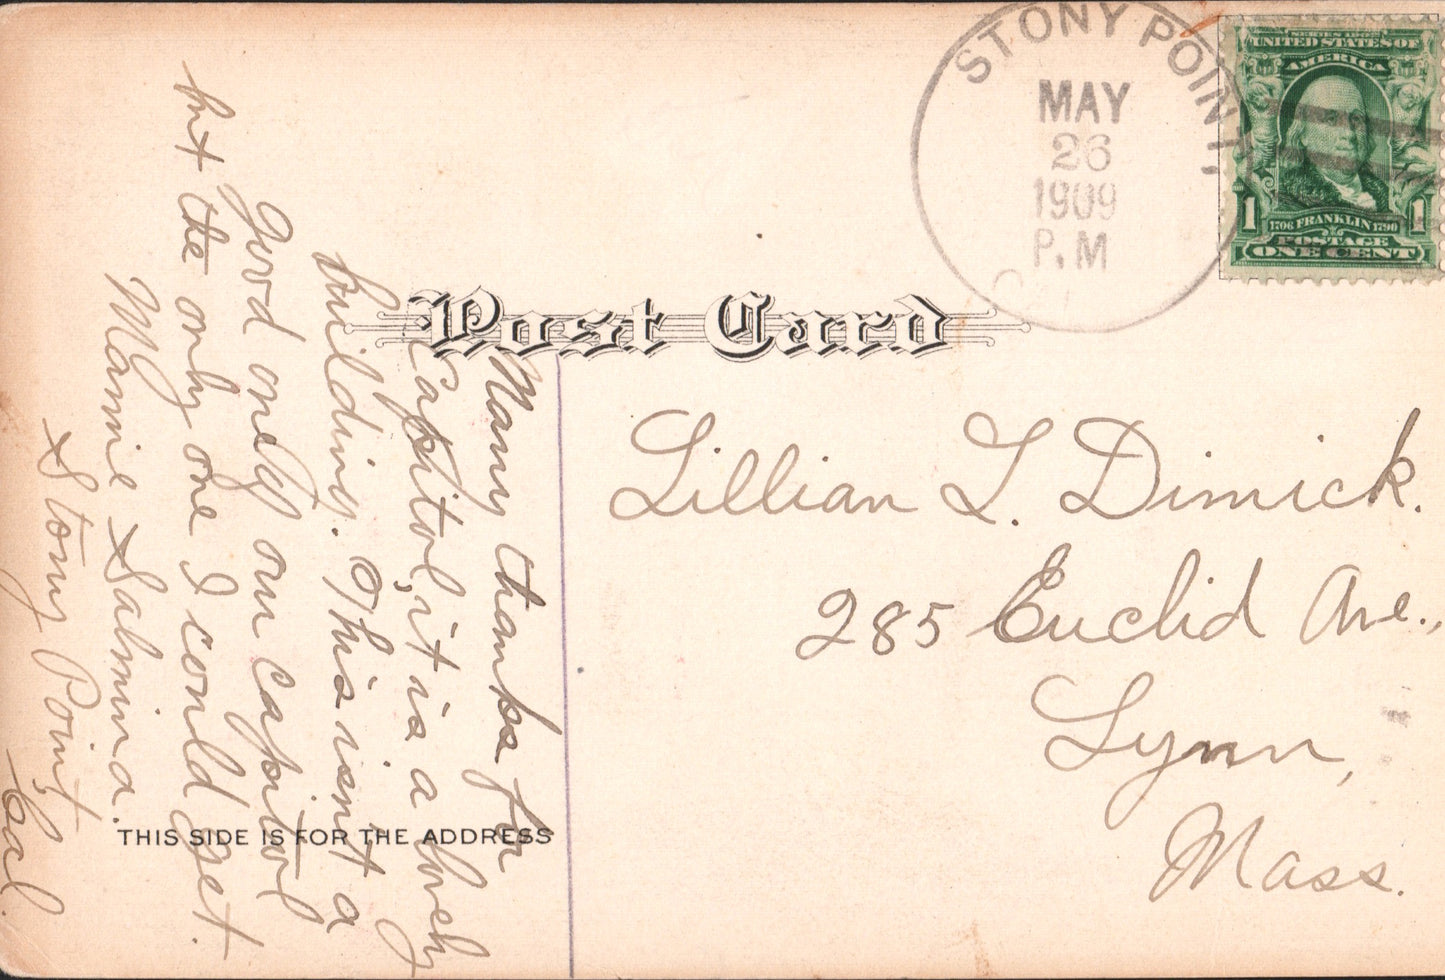 STONY POINT,
MAY
26
1909
P.M
SERIES 1902
UNITED STATES OF
AMERICA
1706 FRANKLIN 1790
POSTAGE
1 1
ONE CENT
Post Card
Many thanks for
Capitol, it is a lovely
building. This isn't a
good one of our capitol
but the only one I could get.
Mamie Salmina.
Stony Point,
Cal.
THIS SIDE IS FOR THE ADDRESS
Lillian L. Dimick.
285 Euclid Ave.,
Lynn,
Mass.